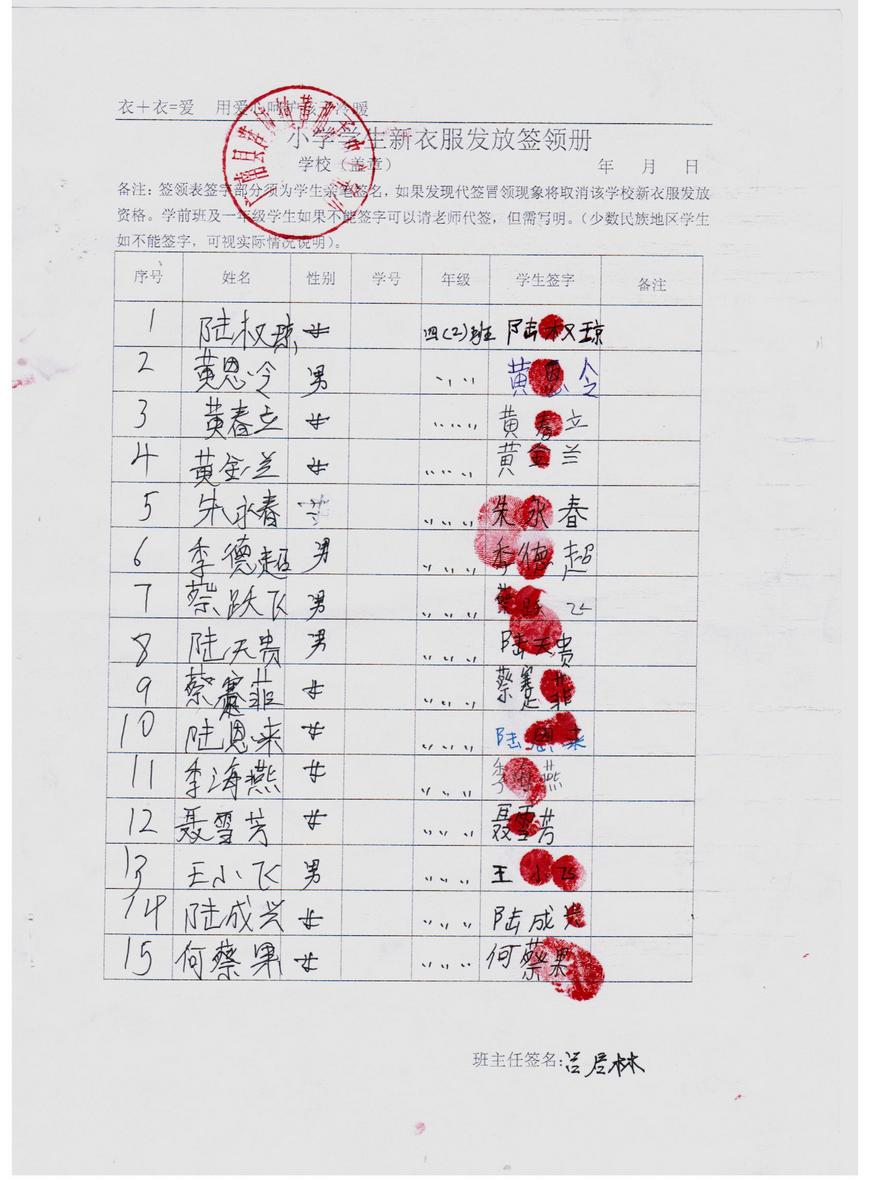 衣＋衣=爱 用爱心呵护孩子冷暖
小学学生新衣服发放签领册
学校（盖章） 年 月 日
备注：签领表签字部分须为学生亲笔签名，如果发现代签冒领现象将取消该学校新衣服发放
资格。学前班及一年级学生如果不能签字可以请老师代签，但需写明。（少数民族地区学生
如不能签字，可视实际情况说明）。
序号 姓名 性别 学号 年级 学生签字 备注
1 陆权琼 女 四(2)班 陆权琼
2 黄恩令 男 〃 〃 黄恩令
3 黄春立 女 〃 〃 黄春立
4 黄金兰 女 〃 〃 黄金兰
5 朱永春 〃 〃 朱永春
6 季德超 男 〃 〃 季德超
7 蔡跃飞 男 〃 〃 蔡跃飞
8 陆天贵 男 〃 〃 陆天贵
9 蔡蹇菲 女 〃 〃 蔡蹇菲
10 陆恩来 女 〃 〃 陆恩来
11 季海燕 女 〃 〃 季海燕
12 聂雪芳 女 〃 〃 聂雪芳
13 王小飞 男 〃 〃 王小飞
14 陆成兴 女 〃 〃 陆成兴
15 何蔡果 女 〃 〃 何蔡果
班主任签名: